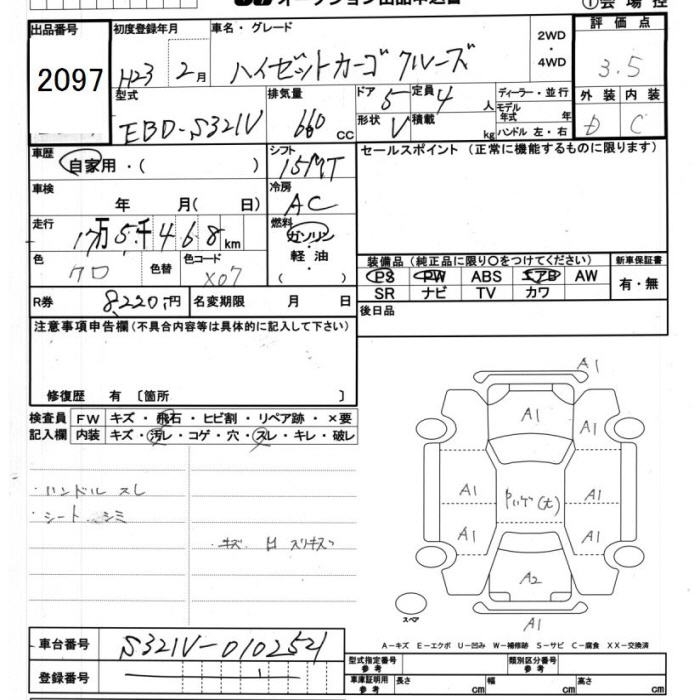 オークション出品申込書
①会場控
出品番号 初度登録年月 車名・グレード 2WD・4WD 評価点
2097 H23 2月 ハイゼットカーゴ クルーズ 3.5
型式 排気量 ドア 定員 ディーラー・並行 外装 内装
EBD-S321V 660 cc 5 4人 モデル年式 年 D C
形状 V 積載 kg ハンドル 左・右
車歴 自家用・( ) シフト 15MT セールスポイント (正常に機能するものに限ります)
車検 年 月( 日) 冷房 AC
走行 17万5千468km 燃料 ガソリン・軽油・( )
色 クロ 色替 色コード X07
装備品 (純正品に限り○をつけてください) 新車保証書
PS PW ABS エアB AW 有・無
SR ナビ TV カワ
R券 8,220円 名変期限 月 日
後日品
注意事項申告欄(不具合内容等は具体的に記入して下さい)
修復歴 有 [箇所 ]
検査員 FW キズ・飛石・ヒビ割・リペア跡・×要
記入欄 内装 キズ・汚レ・コゲ・穴・スレ・キレ・破レ
・ハンドル スレ
・シート シミ
キズ 凹 スリキズ
A1
A1
A1
A1
A1
A1
A1
A2
A1
スペア
A-キズ E-エクボ U-凹み W-補修跡 S-サビ C-腐食 XX-交換済
車台番号 S321V-0102521
登録番号
型式指定番号 参考 類別区分番号 参考
車庫証明用 参考 長さ cm 幅 cm 高さ cm